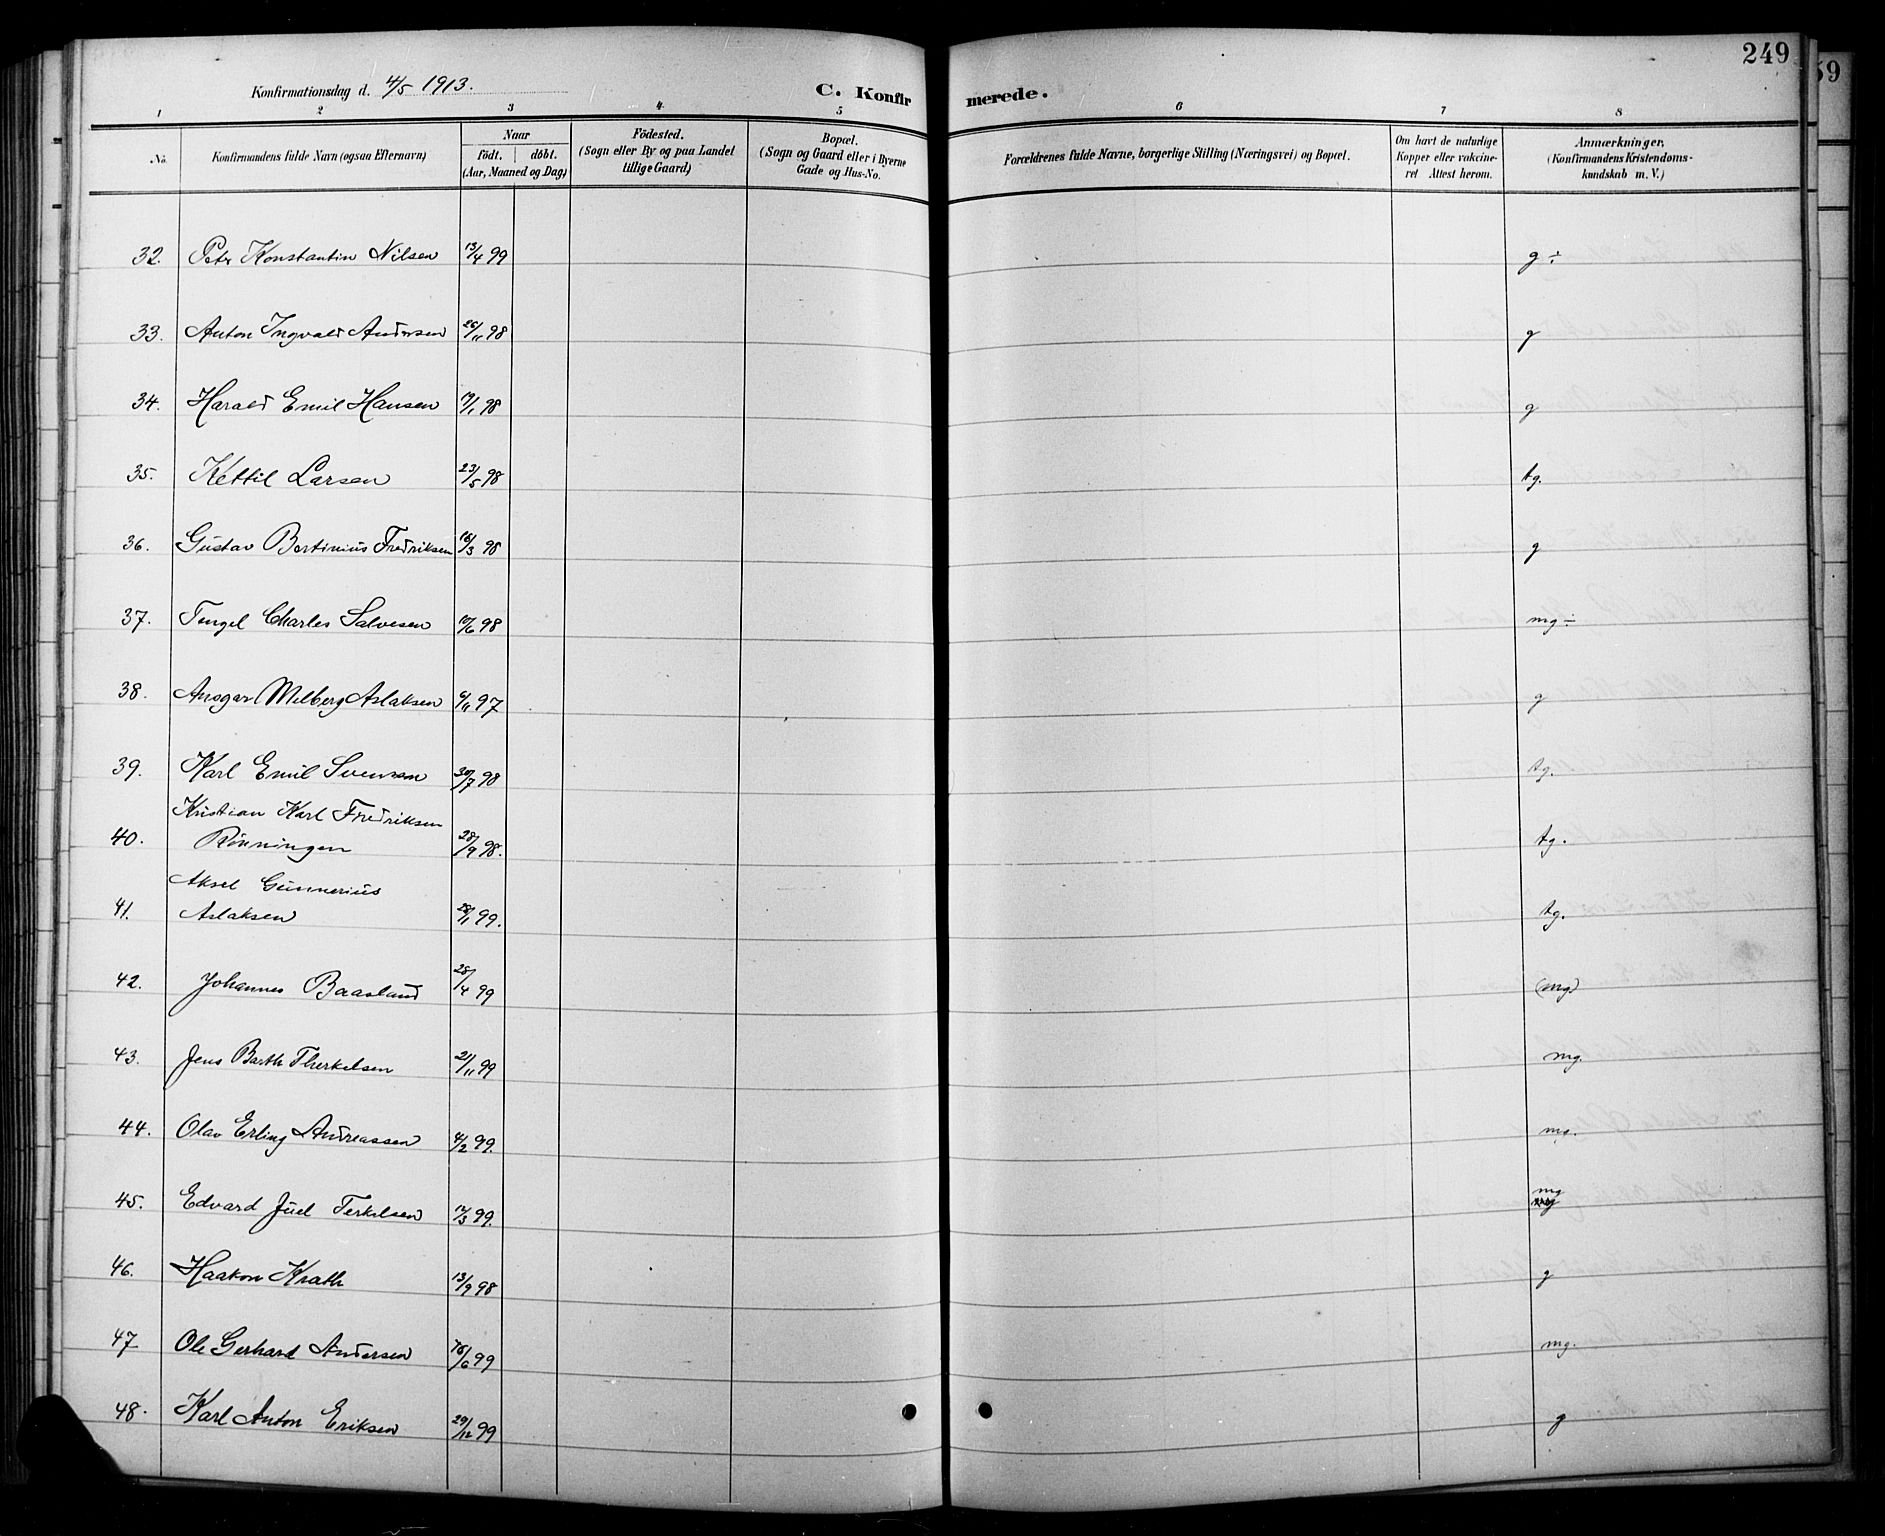 249
59
Konfirmationsdag d. 4/5 1913.
C. Konfirmerede.
1 2 3 4 5 6 7 8
No. Konfirmandens fulde Navn (ogsaa Efternavn) Naar født. døbt. (Aar, Maaned og Dag) Fødested. (Sogn eller By og paa Landet tillige Gaard) Bopæl. (Sogn og Gaard eller i Byerne Gade og Hus-No. Forældrenes fulde Navne, borgerlige Stilling (Næringsvei) og Bopæl. Om havt de naturlige Kopper eller vaksineret Attest herom. Anmærkninger, (Konfirmandens Kristendomskundskab m. V.)
32. Peter Konstantin Nilsen 13/4 99 g ÷
33. Anton Ingvald Andersen 26/11 98 g
34. Harald Emil Hansen 19/1 98 g
35. Kettil Larsen 23/5 98 tg.
36. Gustav Bertinius Fredriksen 16/3 98 g
37. Tengel Charles Salvesen 10/6 98 mg ÷
38. Ansgar Melberg Aslaksen 6/11 97 g
39. Karl Emil Svensen 30/7 98 tg.
Kristian Karl Fredriksen
40. Rönningen 28/9 98. tg.
Aksel Gunnerius
41. Aslaksen 28/1 99. tg.
42. Johannes Baasland 28/4 99 (mg)
43. Jens Barth Therkelsen 21/11 99 mg.
44. Olav Erling Andreassen 4/2 99. mg.
45. Edvard Juel Terkelsen 12/3 99. mg
46. Haakon Krath 13/9 98 g
47 Ole Gerhard Andersen 16/6 99 mg.
48. Karl Anton Eriksen 29/12 99 g